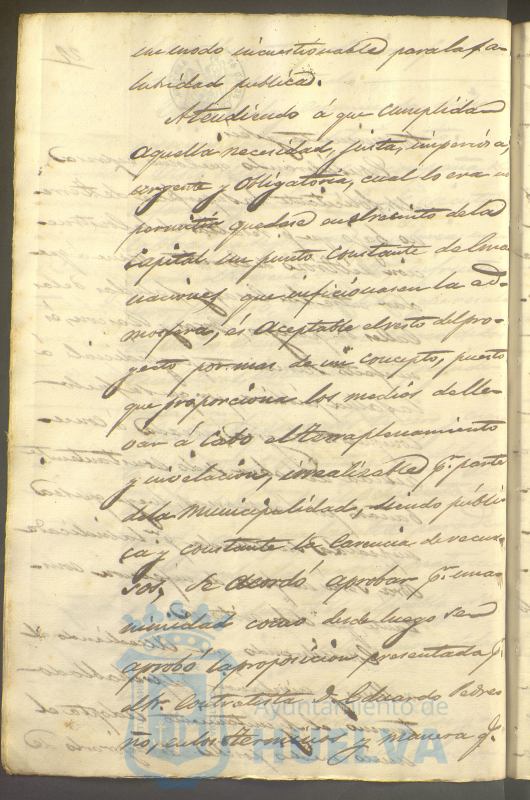 un modo incuestionable para la sa-
lubridad publica.
Atendiendo á que cumplida
aquella necesidad, justa, imperiosa,
urgente y obligatoria, cual lo era no
permitir quedase en el recinto de la
capital un punto constante de ema
naciones que inficionasen la at-
mosfera, es aceptable el resto del pro-
yecto por mas de un concepto, puesto
que proporciona los medios de lle-
var á cabo el terraplenamiento
y nivelacion, irrealizable pr. parte
de la Municipalidad, siendo públi-
ca y constante la carencia de recur-
sos, se acordó aprobar pr. una-
nimidad como desde luego se
aprobó la proposicion presentada pr.
el Contratista D. Eduardo Pedre
ño, en los terminos y manera q.
Ayuntamiento de
HUELVA